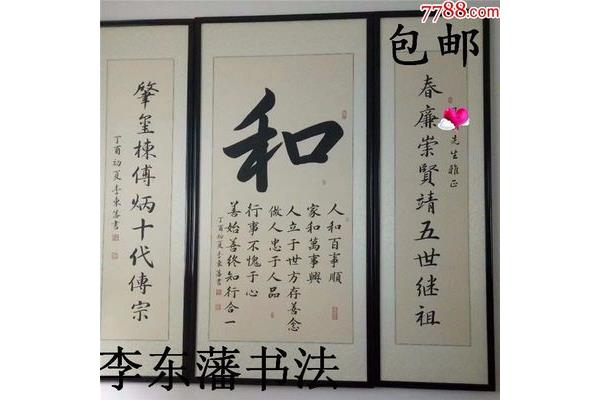 7788.com
包邮
先生雅正
春廉崇賢靖五世继祖
和
人和百事順
家和萬事興
人立于世方存善念
做人忠于人品
行事不愧于心
善始善终知行合一
丁酉初夏李東藩書
肇玺棟傅炳十代傳宗
丁酉初夏李東藩書
李东藩书法